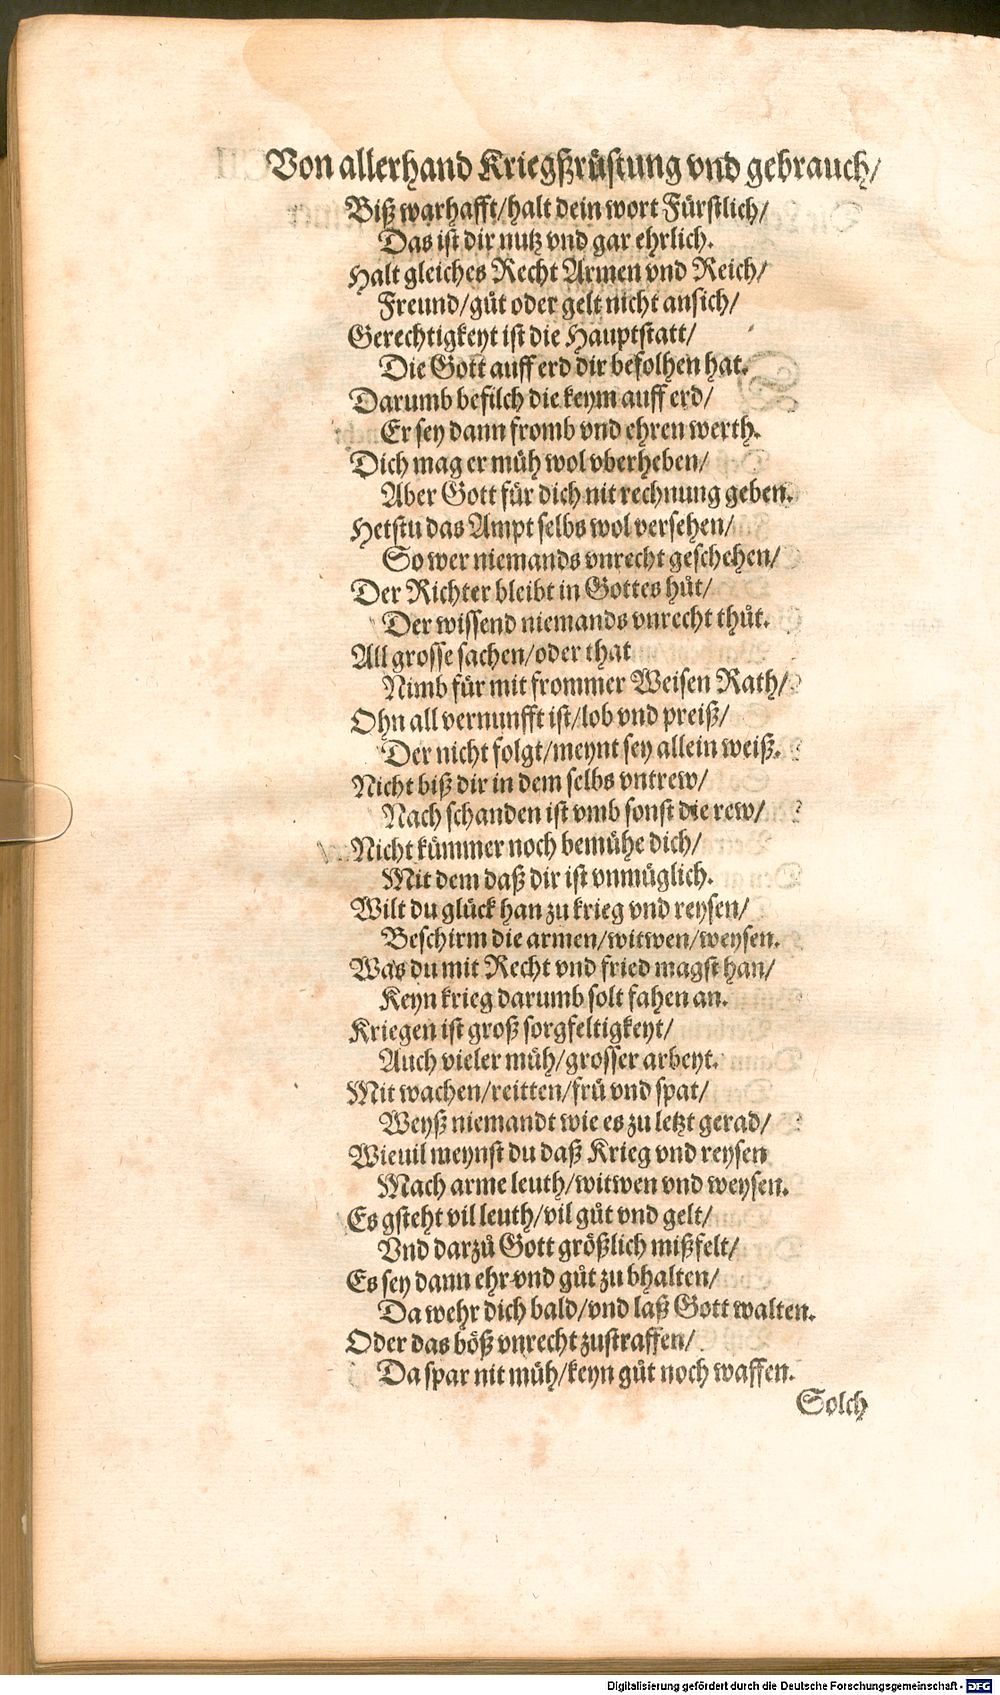 Von allerhand Kriegßrüstung vnd gebrauch/
Biß warhafft/halt dein wort Fürstlich/
Das ist dir nutz vnd gar ehrlich.
Halt gleiches Recht Armen vnd Reich/
Freund/gůt oder gelt nicht ansich/
Gerechtigkeyt ist die Hauptstatt/
Die Gott auff erd dir befolhen hat.
Darumb befilch die keym auff erd/
Er sey dann fromb vnd ehren werth.
Dich mag er müh wol vberheben/
Aber Gott für dich nit rechnung geben.
Hetstu das Ampt selbs wol versehen/
So wer niemands vnrecht geschehen/
Der Richter bleibt in Gottes hůt/
Der wissend niemands vnrecht thůt.
All grosse sachen/oder that
Nimb für mit frommer Weisen Rath/
Ohn all vernunfft ist/lob vnd preiß/
Der nicht folgt/meynt sey allein weiß.
Nicht biß dir in dem selbs vntrew/
Nach schanden ist vmb sonst die rew/
Nicht kümmer noch bemühe dich/
Mit dem daß dir ist vnmüglich.
Wilt du glück han zu krieg vnd reysen/
Beschirm die armen/witwen/weysen.
Was du mit Recht vnd fried magst han/
Keyn krieg darumb solt fahen an.
Kriegen ist groß sorgfeltigkeyt/
Auch vieler müh/grosser arbeyt.
Mit wachen/reitten/frü vnd spat/
Weyß niemandt wie es zu letzt gerad/
Wieuil meynst du daß Krieg vnd reysen
Mach arme leuth/witwen vnd weysen.
Es gsteht vil leuth/vil gůt vnd gelt/
Vnd darzů Gott größlich mißfelt/
Es sey dann ehr vnd gůt zu bhalten/
Da wehr dich bald/vnd laß Gott walten.
Oder das böß vnrecht zustraffen/
Da spar nit müh/keyn gůt noch waffen.
Solch
Digitalisierung gefördert durch die Deutsche Forschungsgemeinschaft - DFG